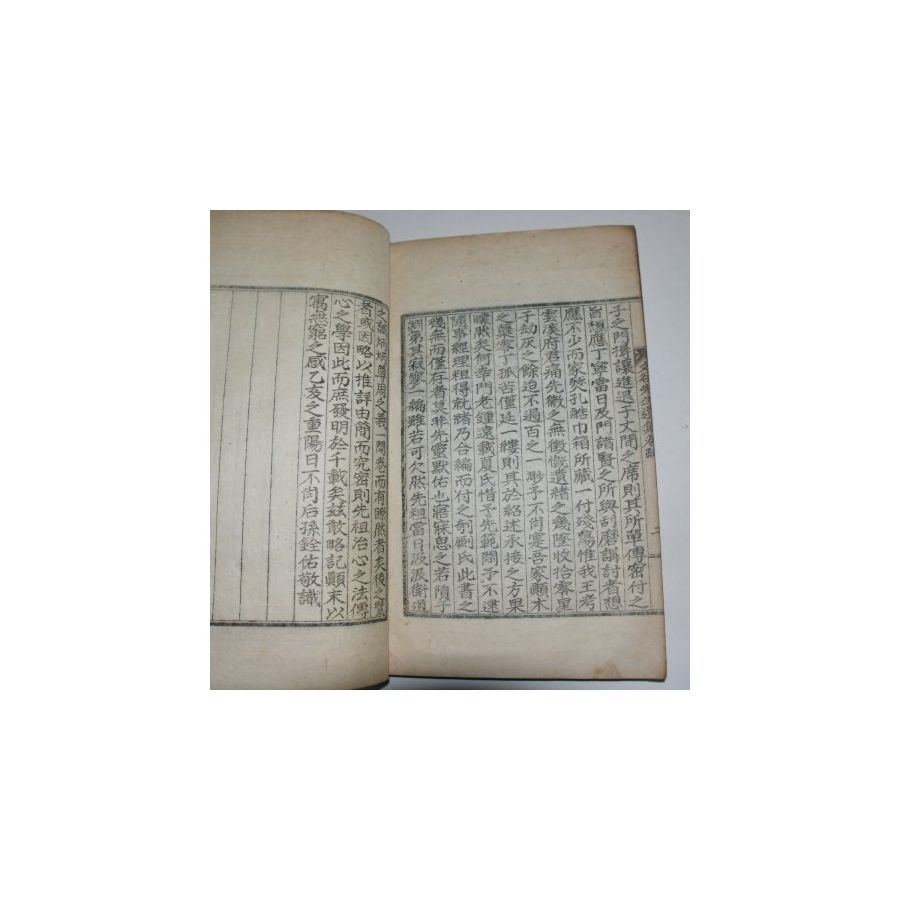 子之門揖讓進退于丈間之席則其所單傳密付之
旨想應丁寧當日及門諸賢之所與刮磨講討者想
應不少而家燹孔酷巾箱所臧一付殘傷惟我王考
雲溪府君痛先徽之無徵慨遺緖之幾墜收拾零星
于劫灰之餘迨不過百之一眇予不肖寔吾家顚木
之蘖孽孤苦僅延一縷則其於紹述承接之方果
瞢然矣何幸門老鍾遠載夏氏惜予先範悶予不逮
傾事經理租得就緖乃合編而付之剞劂氏此書之
幾無而僅存者莫非先靈默佑也寤寐思之若隕于
淵第其寂寥一編雖若可欠然先祖當日汲汲衛道
之誠炳炳尊周之義一開卷而有瞭然者矣後之覽
者或因略以推詳由簡而究密則先祖治心之法傳
心之學因此而庶發明於千載矣玆敢略記顚末以
寓無窮之感乙亥之重陽日不肖后孫銓佑敬識